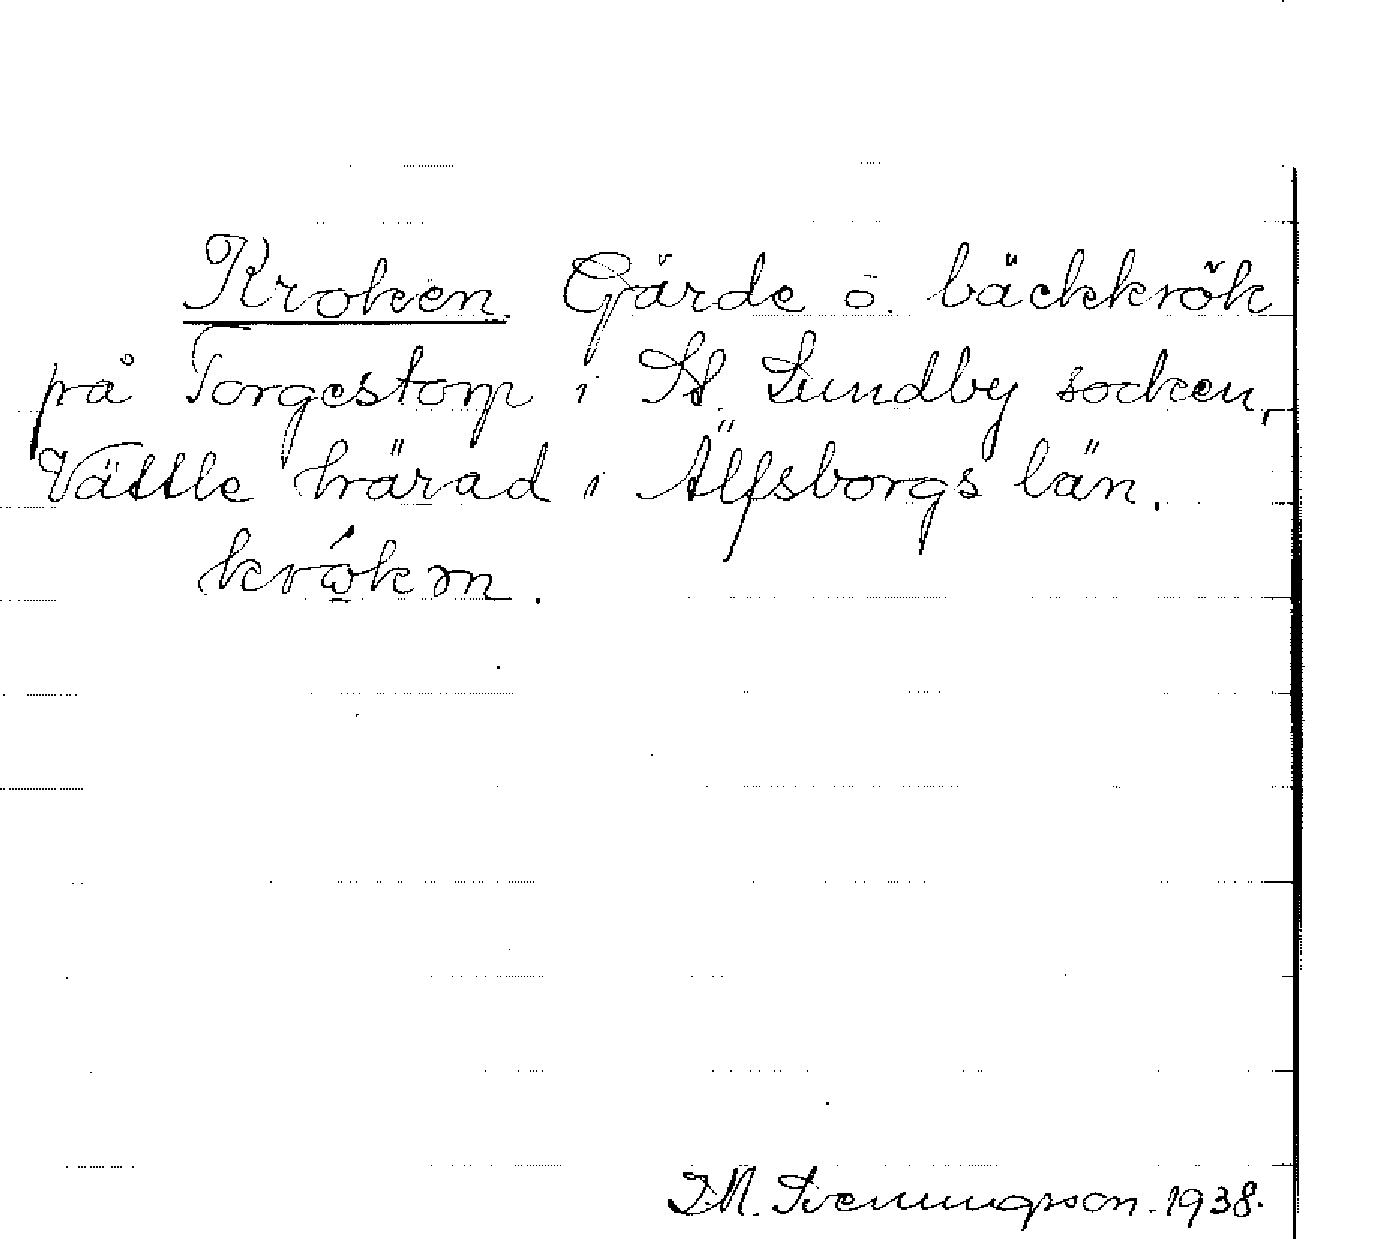 Kroken. Gärde ö. bäckkrök
på Torgestorp i St. Lundby socken,
Vättle härad i Älfsborgs län.
I.M. Svenungsson. 1938.